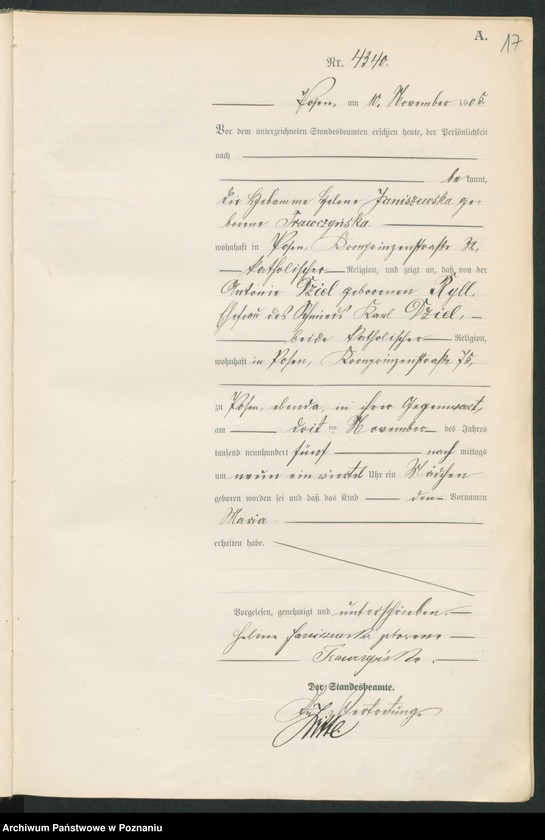 A.
17
Nr. 4340.
Posen, am 10. November 1905
Vor dem unterzeichneten Standesbeamten erschien heute, der Persönlichkeit
nach
be kannt,
die Hebamme Helene Janiszewska ge-
borene Frawczyńska
wohnhaft in Posen, Kronprinzenstraße 32,
katholischer Religion, und zeigt an, daß von der
Antonie Dziel geborenen Ryll,
Ehefrau des Schmieds Karl Dziel,
beide katholischer Religion,
wohnhaft in Posen, Kronprinzenstraße 75,
zu Posen, ebenda, in ihrer Gegenwart,
am dritten November des Jahres
tausend neunhundert fünf nach mittags
um neun ein viertel Uhr ein Mädchen
geboren worden sei und daß das Kind den Vornamen
Maria
erhalten habe.
Vorgelesen, genehmigt und unterschrieben.
Helene Janiszewska geborene
Der Standesbeamte.
In Vertretung.
Archiwum Państwowe w Poznaniu